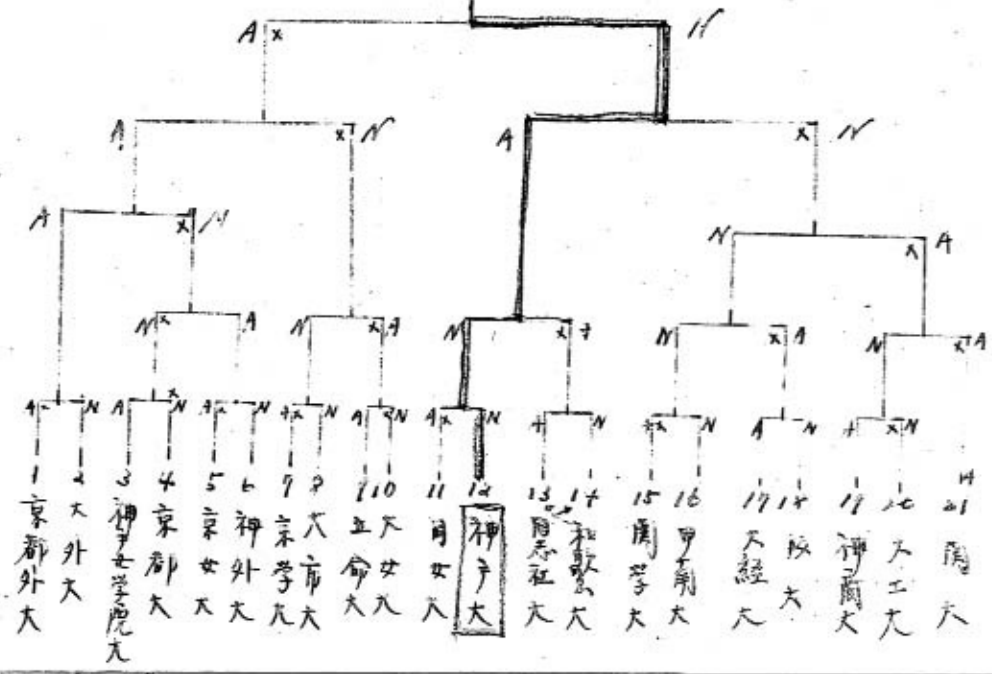 A x N
A x N A x N
A x N N x A
N x A N x A N x N x A N x A
A N A x N A N x N A N A x N A N x N A N A x N
1 京都外大
2 大外大
3 神戸女学院大
4 京都大
5 京女大
6 神外大
7 京学大
8 大市大
9 立命大
10 大女大
11 同女大
12 神戸大
13 同志社大
14 和歌山大
15 関学大
16 甲南大
17 大経大
18 阪大
19 神商大
20 大工大
21 関大